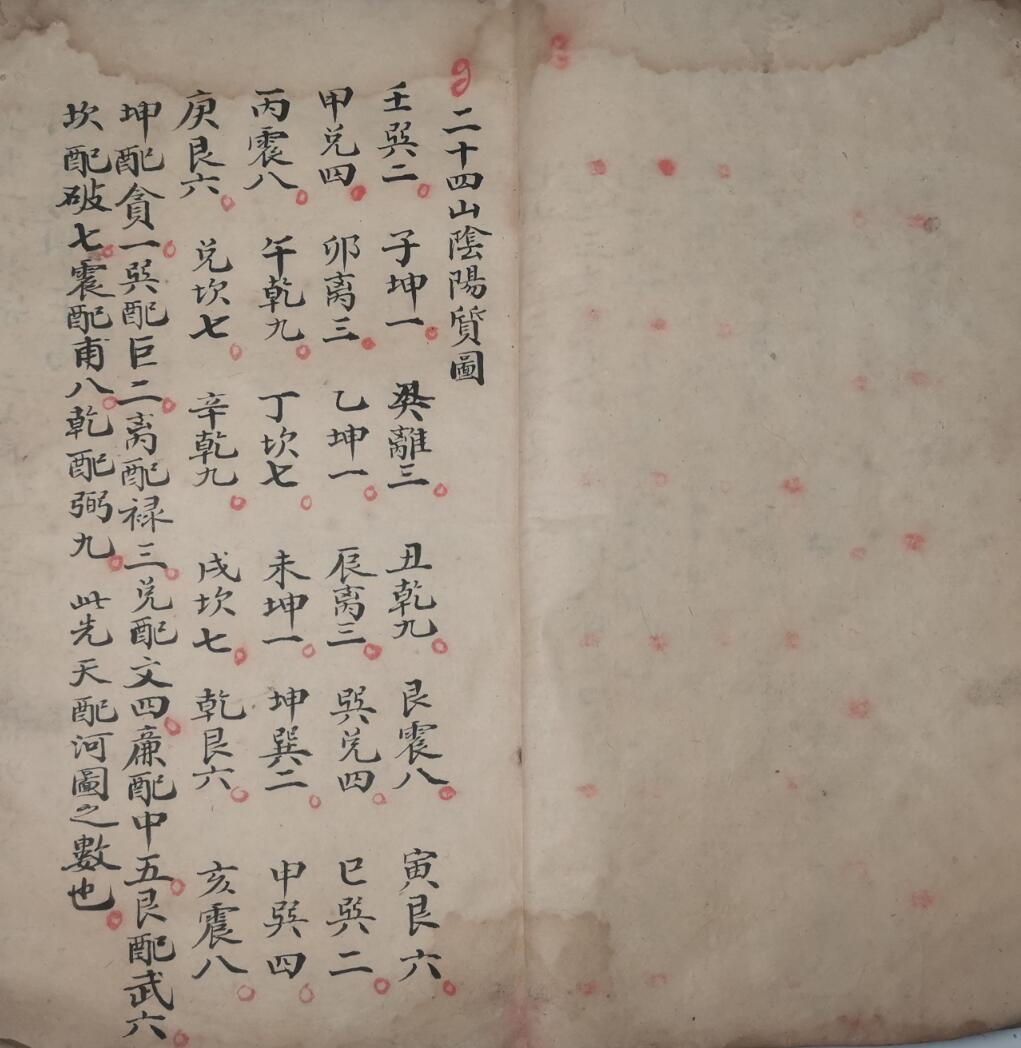 二十四山陰陽質圖
壬巽二 子坤一 癸離三 丑乾九 艮震八 寅艮六
甲兑四 卯离三 乙坤一 辰离三 巽兑四 巳巽二
丙震八 午乾九 丁坎七 未坤一 坤巽二 申巽四
庚艮六 兑坎七 辛乾九 戌坎七 乾艮六 亥震八
坤配貪一巽配巨二离配禄三兑配文四亷配中五艮配武六
坎配破七震配甫八乾配弼九 此先天配河圖之數也